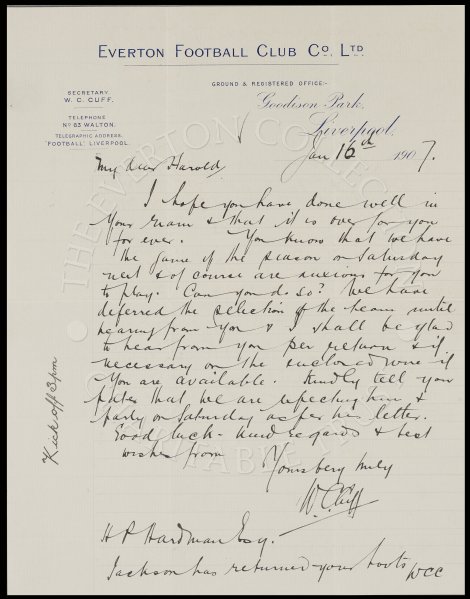 EVERTON FOOTBALL CLUB CO. LTD.
GROUND & REGISTERED OFFICE:-
SECRETARY
W. C. CUFF.
Goodison Park,
TELEPHONE
NO 83 WALTON.
Liverpool.
TELEGRAPHIC ADDRESS
"FOOTBALL", LIVERPOOL.
Jan 16th 1907.
My dear Harold,
I hope you have done well in
your exam & that it is over for you
for ever. You know that we have
the game of the season on Saturday
next & of course are anxious for you
to play. Can you do so? We have
deferred the selection of the team until
hearing from you & I shall be glad
to hear from you per return & if
necessary on the enclosed wire if
you are available. Kindly tell your
pater that we are expecting him &
party on Saturday as per his letter.
Good luck - kind regards & best
wishes from
Yours very truly
W. C. Cuff
Kick off 3 pm
H P Hardman Esq.
Jackson has returned your boots WCC
THE EVERTON COLLECTION
CHARITABLE TRUST